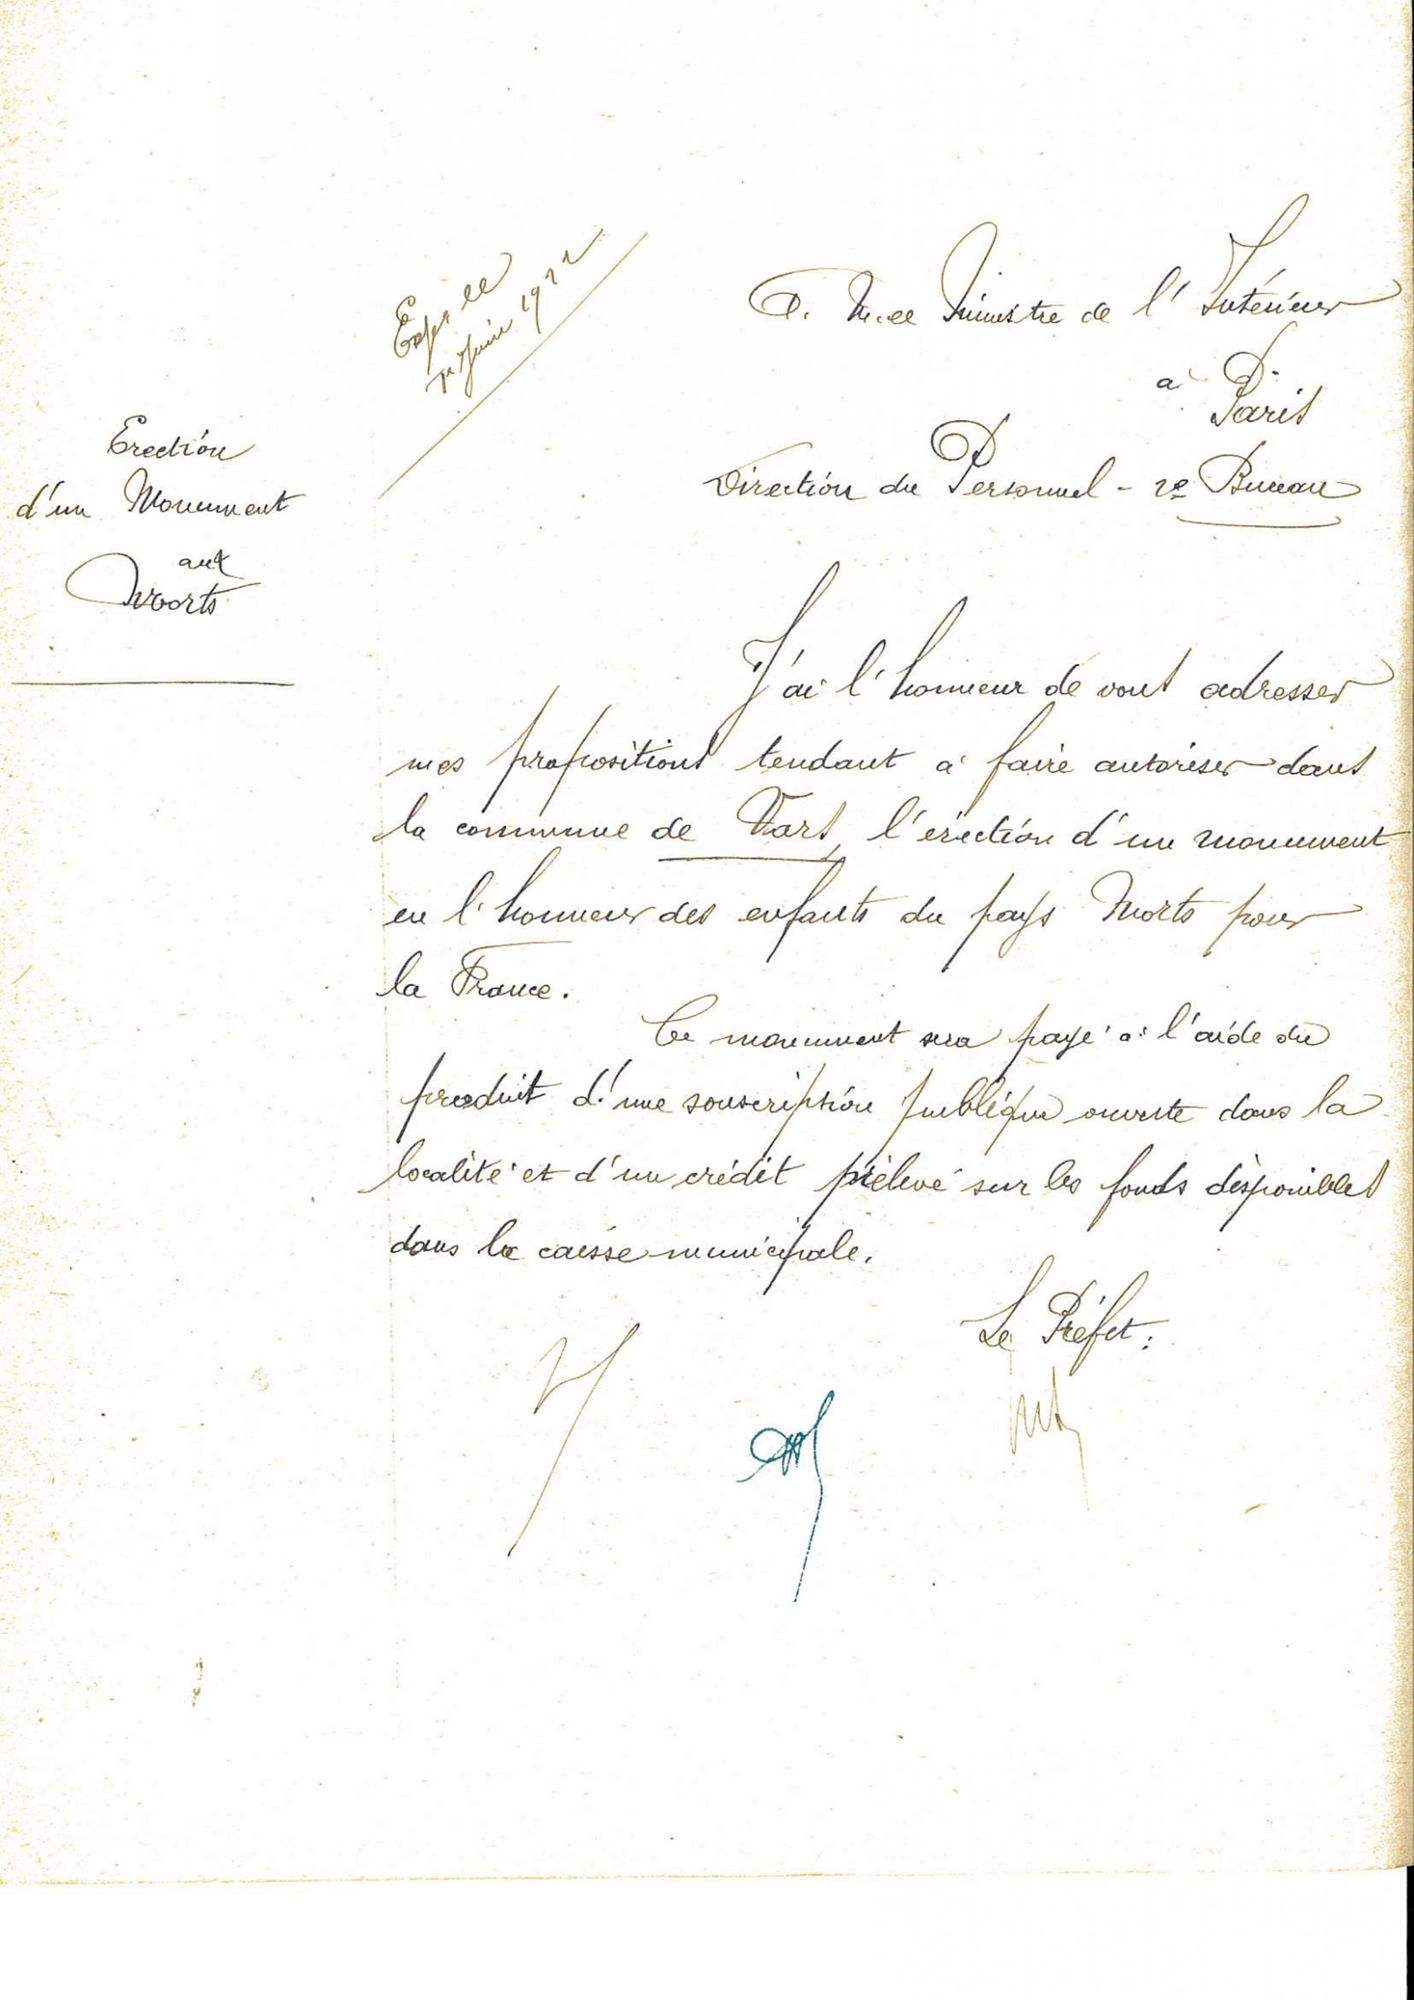 Exp. le
1er Juin 1922
A. M. le Ministre de l'Intérieur
à Paris
Direction du Personnel - 2e Bureau
Erection
d'un Monument
aux
Morts
J'ai l'honneur de vous adresser
mes propositions tendant à faire autoriser dans
la commune de Vars, l'érection d'un monument
en l'honneur des enfants du pays Morts pour
la France.
Ce monument sera payé à l'aide du
produit d'une souscription publique ouverte dans la
localité et d'un crédit prélevé sur les fonds disponibles
dans la caisse municipale.
Le Préfet: